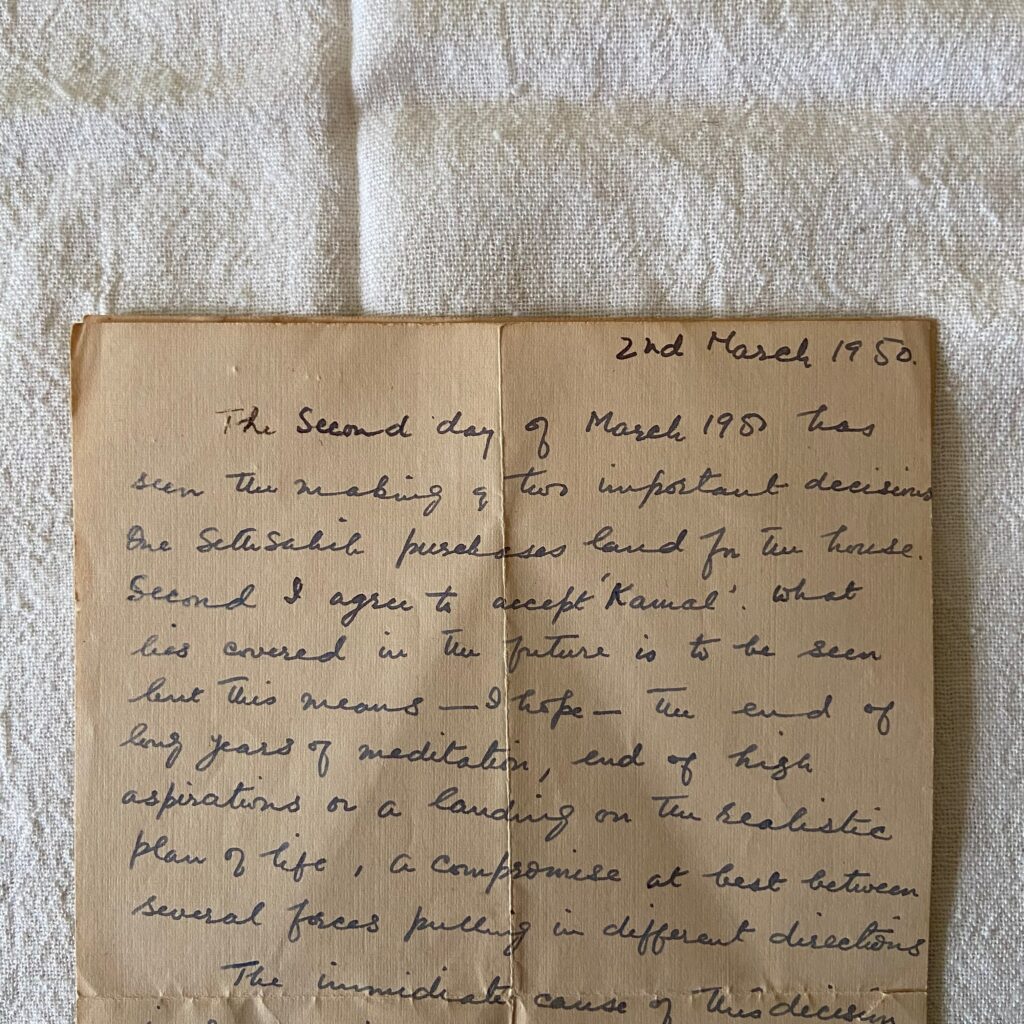 2nd March 1950.
The Second day of March 1950 has
seen the making of two important decisions
One Sethsahib purchases land for the house.
Second I agree to accept 'Kamal'. What
lies covered in the future is to be seen
but this means — I hope — the end of
long years of meditation, end of high
aspirations or a landing on the realistic
plan of life, a compromise at best between
several forces pulling in different directions
The immidiate cause of this decision